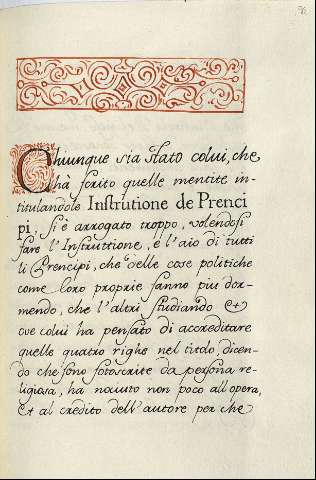 Chiunque sia stato colui, che
hà scrito quelle mentite in-
titulandole Instrutione de Prenci
pi, si è arrogato troppo, volendosi
fare l'Instruttione, e l'aio di tutti
li Prencipi, che delle cose politiche
come loro proprie sanno piu dor-
mendo, che l'altri studiando et
ove colui ha pensato di accreditare
quelle quatro righe nel titolo, dicen-
do che sono sotoscrite da persona re-
ligiosa, ha nociuto non poco all'opera,
et al credito dell'autore per che